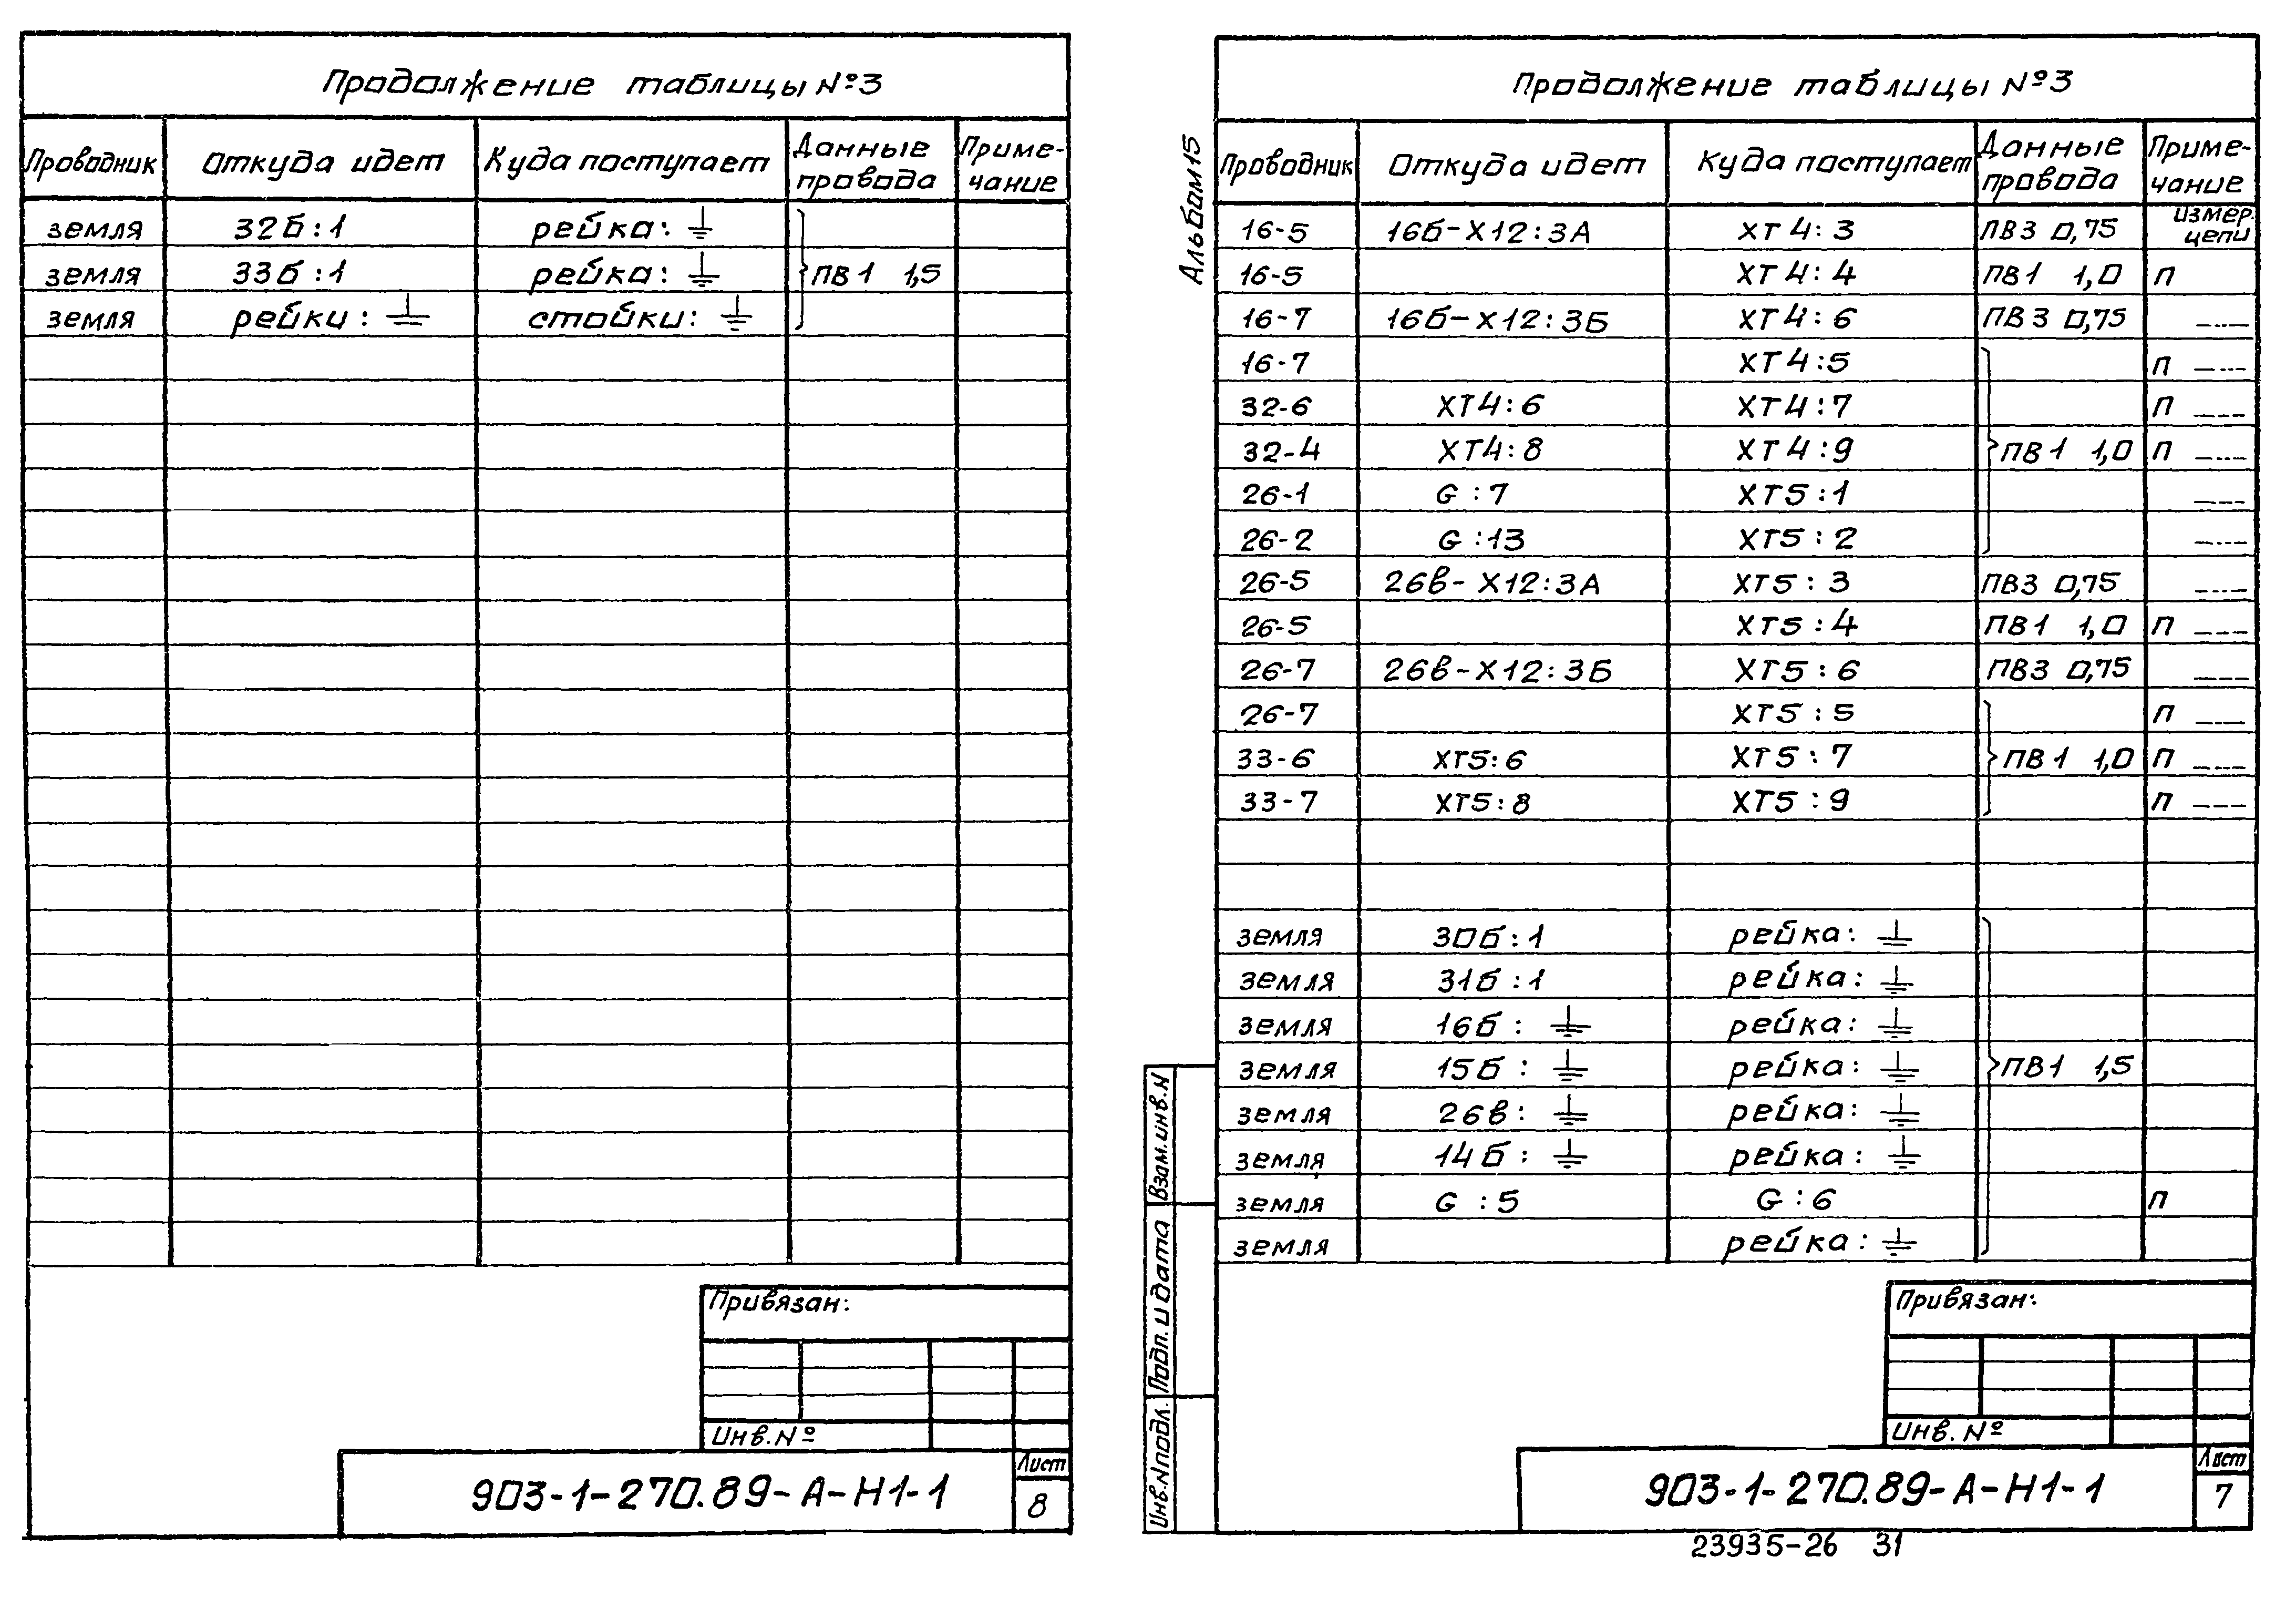 Продолжение таблицы №3
Проводник Откуда идет Куда поступает Данные провода Приме-чание
земля 32б:1 рейка: ⏚
земля 33б:1 рейка: ⏚ ПВ1 1,5
земля рейки: ⏚ стойки: ⏚
Привязан:
Инв.№
903-1-270.89-А-Н1-1
Лист
8
Альбом 15
Продолжение таблицы №3
Проводник Откуда идет Куда поступает Данные провода Приме-чание
16-5 16б-Х12:3А ХТ4:3 ПВ3 0,75 измер. цепи
16-5 ХТ4:4 ПВ1 1,0 П
16-7 16б-Х12:3Б ХТ4:6 ПВ3 0,75 —"—
16-7 ХТ4:5 П —"—
32-6 ХТ4:6 ХТ4:7 П —"—
32-4 ХТ4:8 ХТ4:9 ПВ1 1,0 П —"—
26-1 G:7 ХТ5:1 —"—
26-2 G:13 ХТ5:2 —"—
26-5 26в-Х12:3А ХТ5:3 ПВ3 0,75 —"—
26-5 ХТ5:4 ПВ1 1,0 П —"—
26-7 26в-Х12:3Б ХТ5:6 ПВ3 0,75 —"—
26-7 ХТ5:5 П —"—
33-6 ХТ5:6 ХТ5:7 ПВ1 1,0 П —"—
33-7 ХТ5:8 ХТ5:9 П —"—
земля 30б:1 рейка: ⏚
земля 31б:1 рейка: ⏚
земля 16б: ⏚ рейка: ⏚
земля 15б: ⏚ рейка: ⏚ ПВ1 1,5
земля 26в: ⏚ рейка: ⏚
земля 14б: ⏚ рейка: ⏚
земля G:5 G:6 П
земля рейка: ⏚
Взам.инв.N
Подп. и дата
Инв.Nподл.
Привязан:
Инв.№
903-1-270.89-А-Н1-1
Лист
7
23935-26 31